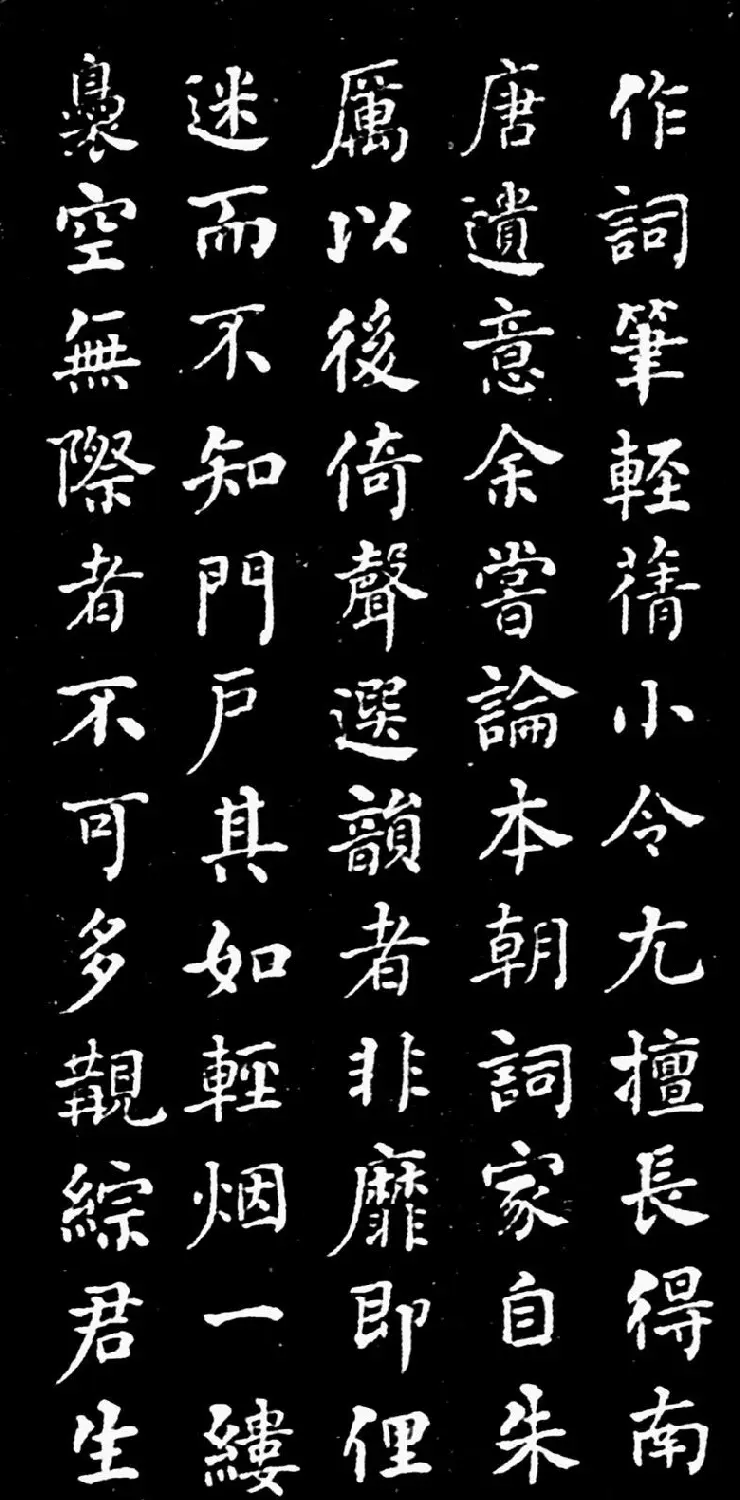 作詞筆輕蒨小令尤擅長得南
唐遺意余嘗論本朝詞家自朱
厲以後倚聲選韻者非靡即俚
迷而不知門戶其如輕烟一縷
裊空無際者不可多覯綜君生